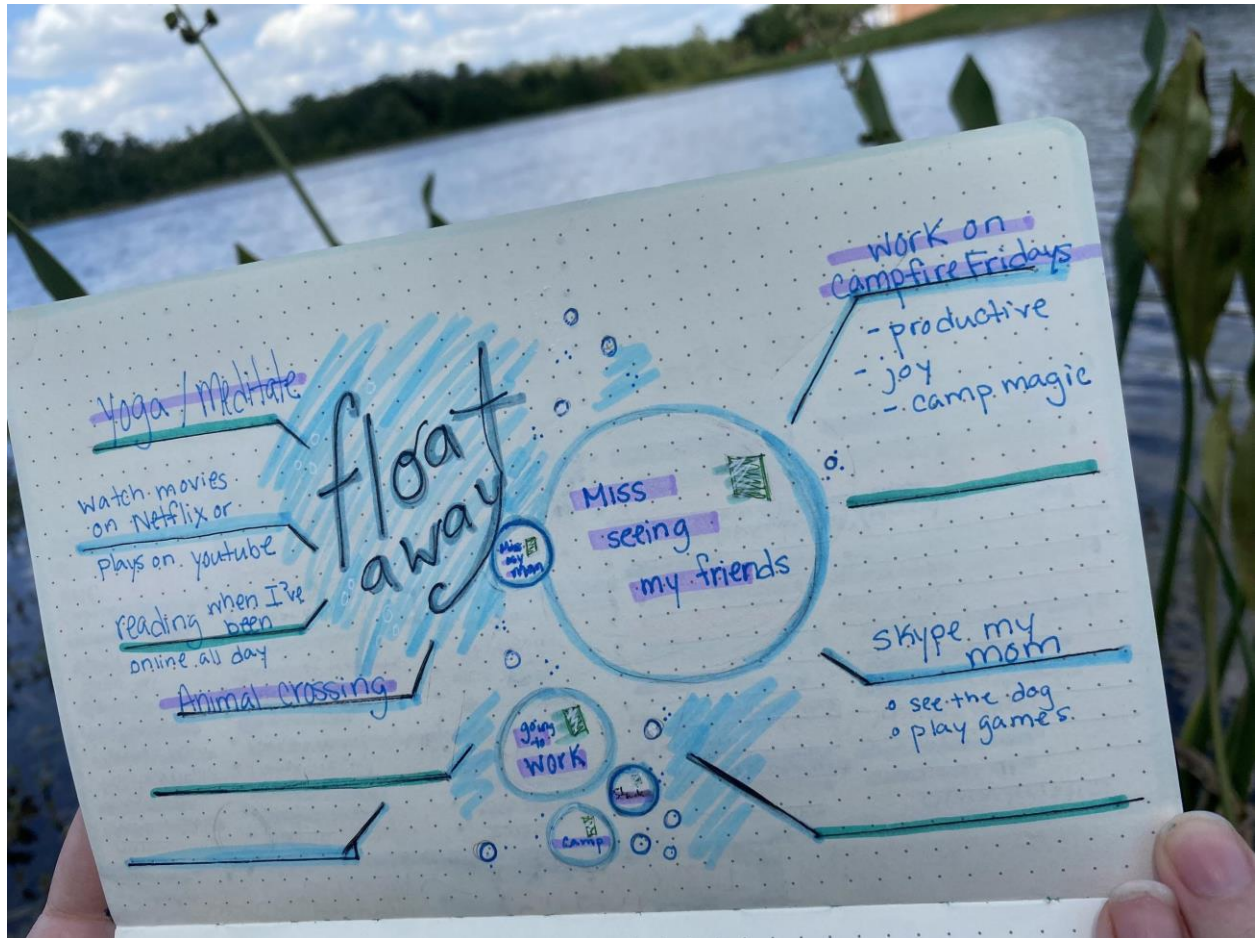 float
away
Yoga / Meditate
watch movies
on Netflix or
plays on youtube
reading when I've
been
online all day
Animal crossing
Miss
my
Miss
seeing
my friends
going
to
work
camp
work on
campfire Fridays
- productive
- joy
- camp magic
skype my
mom
see the dog
play games